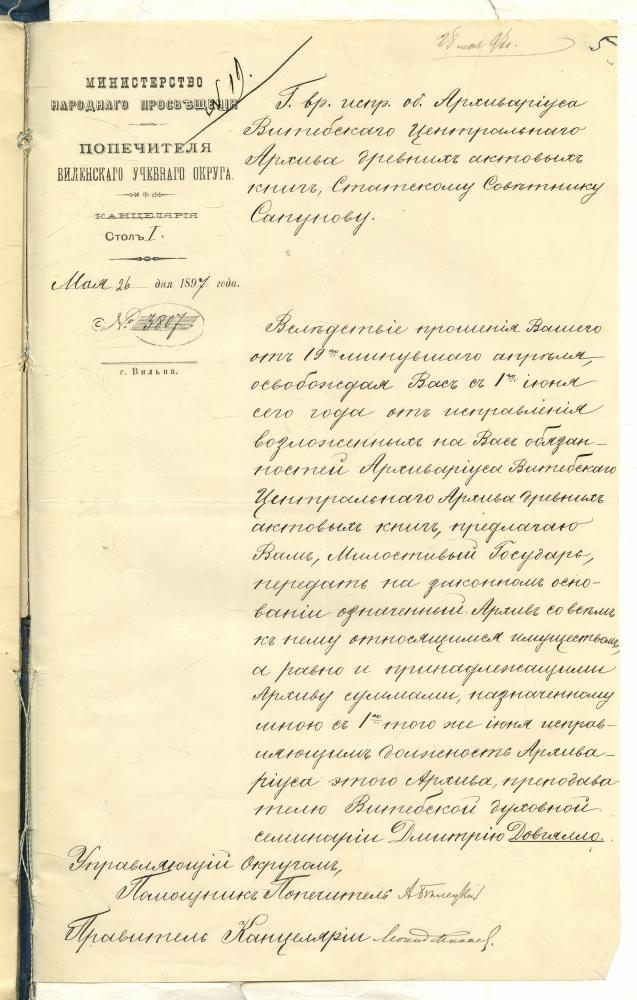 28 мая 97 г.
5
№ 19.
МИНИСТЕРСТВО
НАРОДНАГО ПРОСВѢЩЕНІЯ
ПОПЕЧИТЕЛЯ
ВИЛЕНСКАГО УЧЕБНАГО ОКРУГА.
КАНЦЕЛЯРІЯ
Столъ I.
Мая 26 дня 1897 года.
№ 3807
г. Вильна.
Г. вр. испр. об. Архиваріуса
Витебскаго Центральнаго
Архива древнихъ актовыхъ
книгъ, Статскому Совѣтнику
Сапунову.
Вслѣдствіе прошенія Вашего
отъ 19го минувшаго апрѣля,
освобождая Васъ съ 1го іюня
сего года отъ исправленія
возложенныхъ на Васъ обязан-
ностей Архиваріуса Витебскаго
Центральнаго Архива древнихъ
актовыхъ книгъ, предлагаю
Вамъ, Милостивый Государь,
передать на законномъ осно-
ваніи означенный Архивъ со всѣмъ
къ нему относящимся имуществомъ,
а равно и принадлежащими
Архиву суммами, назначенному
мною съ 1го того же іюня исправ-
ляющимъ должность Архива-
ріуса этого Архива, преподава-
телю Витебской духовной
семинаріи Дмитрію Довгялло.
Управляющій Округомъ,
Помощникъ Попечителя А Бѣлецкій
Правитель Канцеляріи